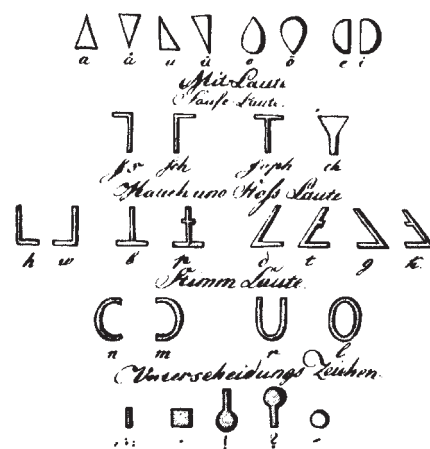 a ä u ü o ö e i
Mit Laute
Sause Laute.
f.s sch f.v.ph ch
Hauch und Stoß Laute
h w b p d t g k.
Stumm Laute.
n m r l
Unterscheidungs Zeichen.
! ?